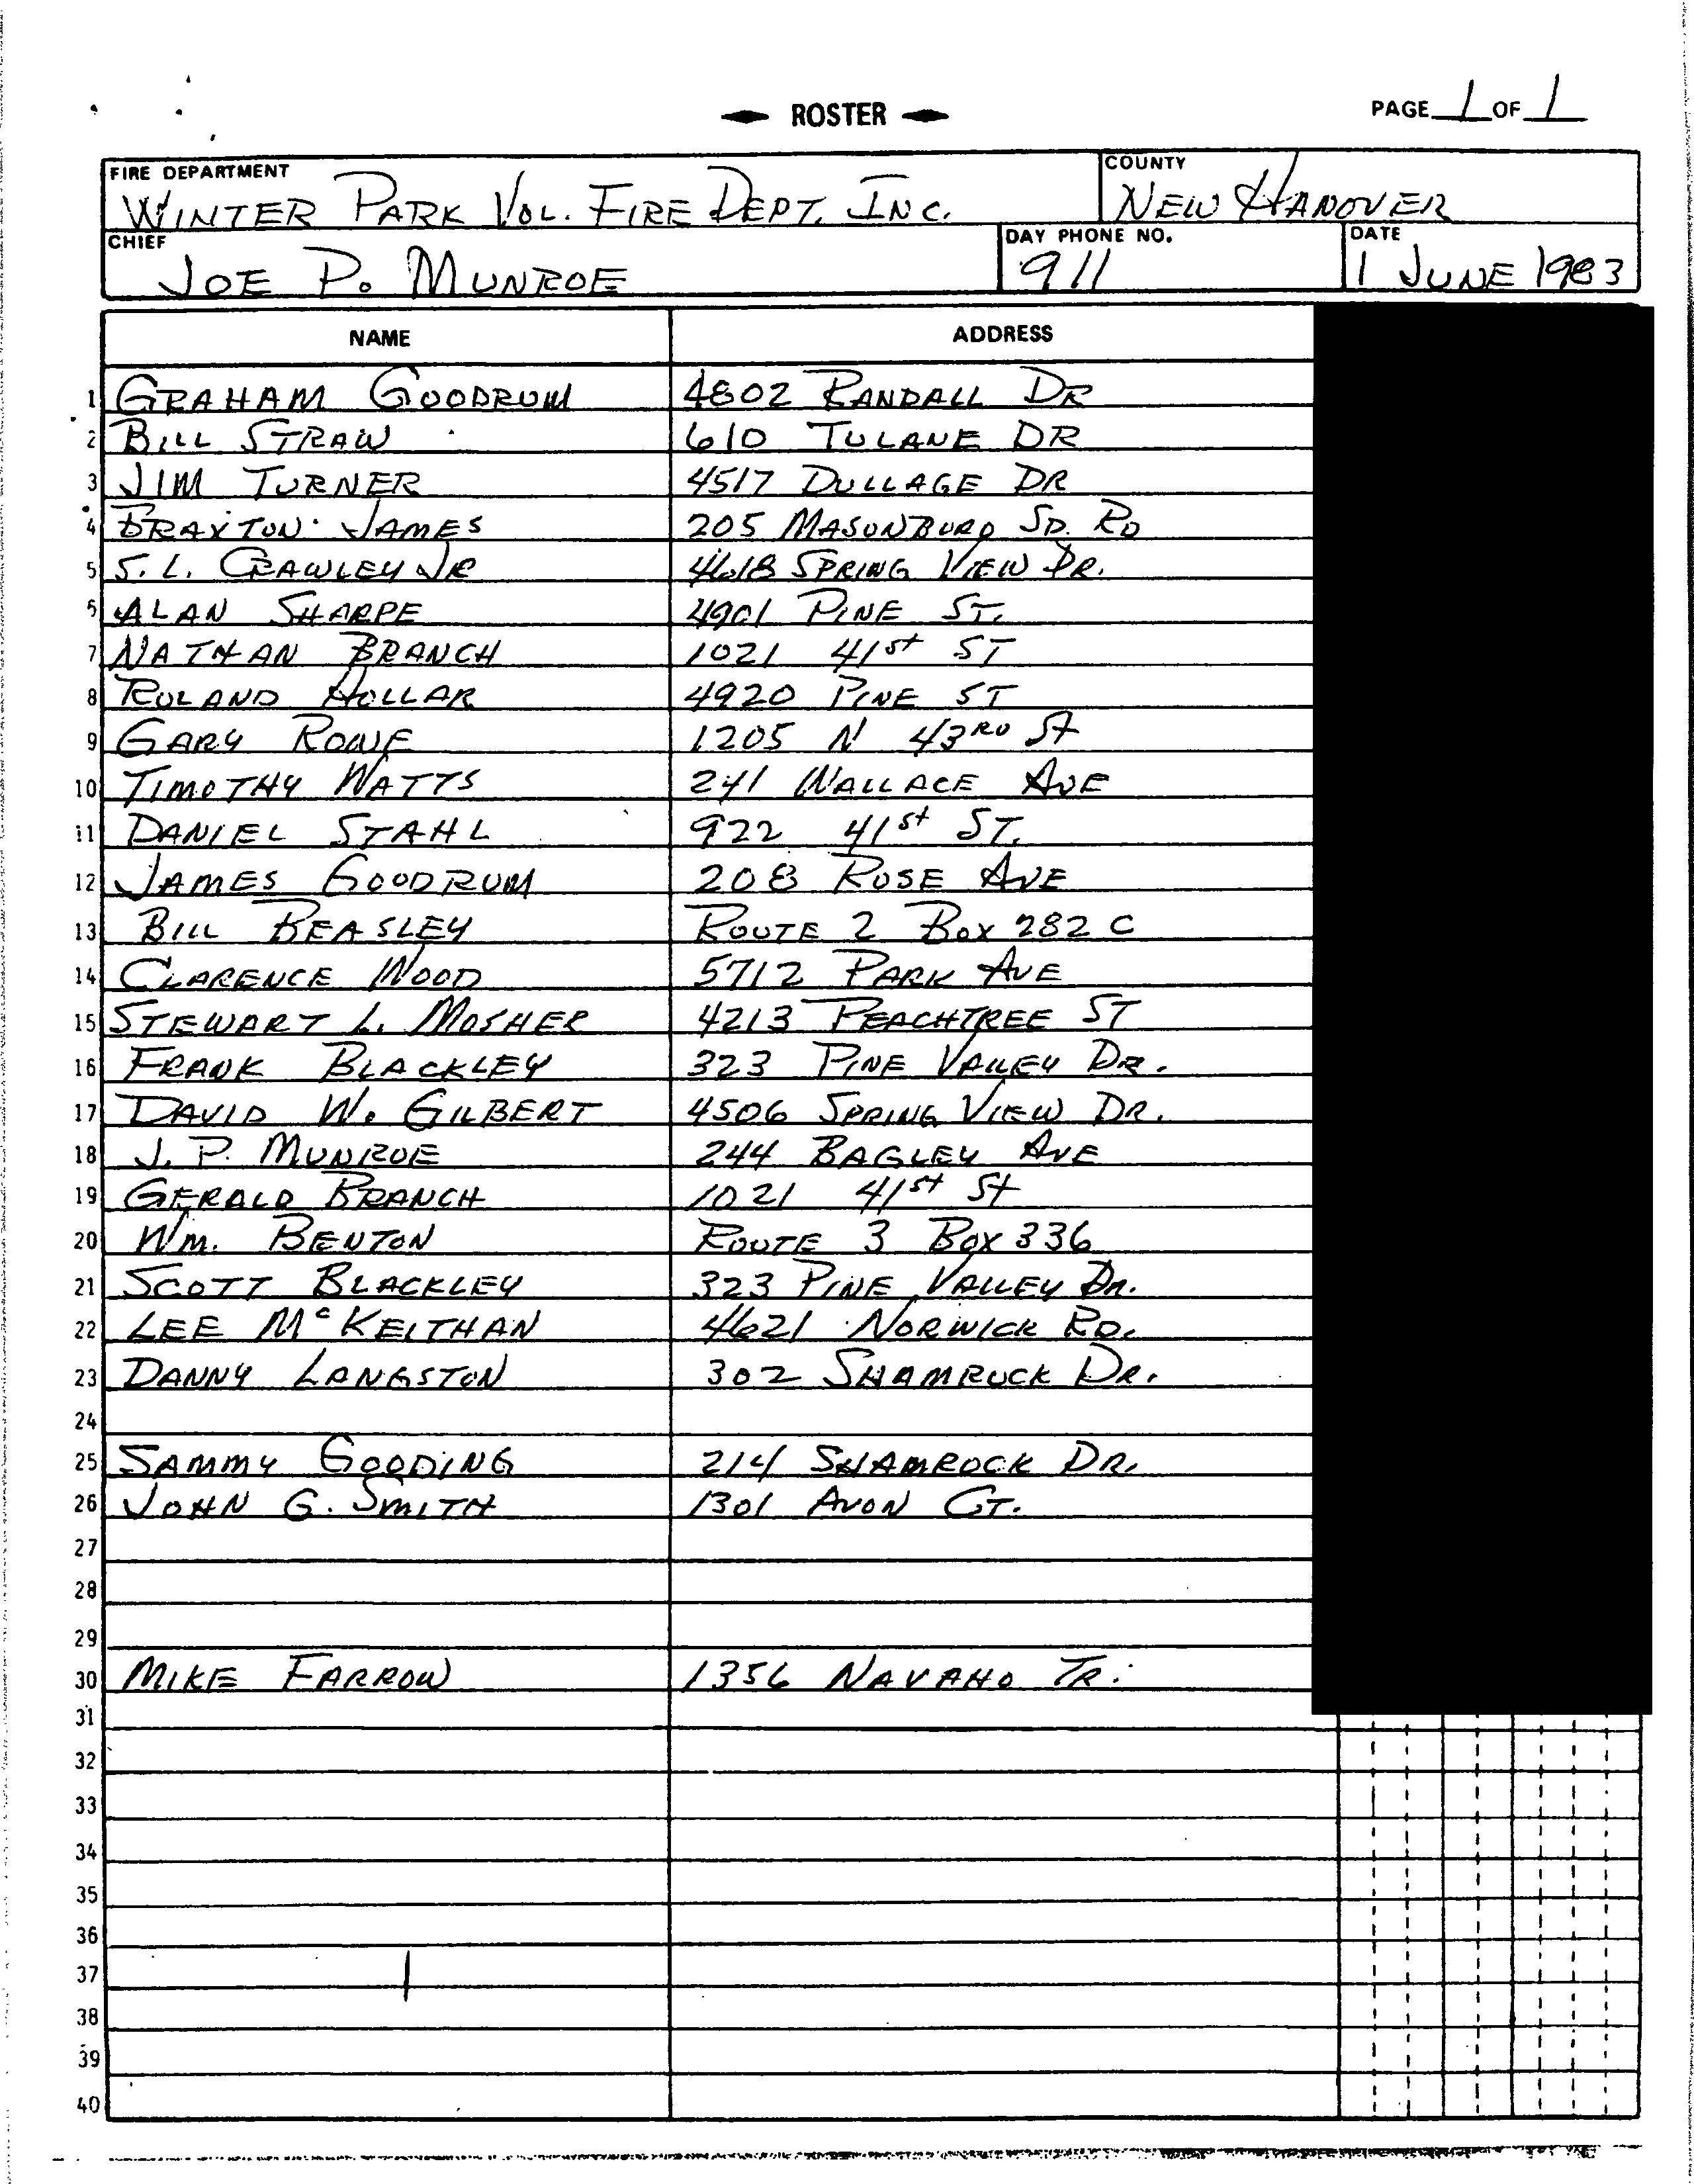 ROSTER
PAGE 1 OF 1
FIRE DEPARTMENT
WINTER PARK VOL. FIRE DEPT. INC.
COUNTY
NEW HANOVER
CHIEF
JOE P. MUNROE
DAY PHONE NO.
911
DATE
1 JUNE 1983
NAME ADDRESS
1 GRAHAM GOODRUM 4802 RANDALL DR
2 BILL STRAW 610 TULANE DR
3 JIM TURNER 4517 DULLAGE DR
4 BRAXTON JAMES 205 MASONBORO SD. RD
5 S. L. CRAWLEY JR 4618 SPRING VIEW DR.
6 ALAN SHARPE 4901 PINE ST.
7 NATHAN BRANCH 1021 41st ST
8 ROLAND HOLLAR 4920 PINE ST
9 GARY ROWE 1205 N 43RD St
10 TIMOTHY WATTS 241 WALLACE AVE
11 DANIEL STAHL 922 41st ST.
12 JAMES GOODRUM 208 ROSE AVE
13 BILL BEASLEY ROUTE 2 BOX 282 C
14 CLARENCE WOOD 5712 PARK AVE
15 STEWART L. MOSHER 4213 PEACHTREE ST
16 FRANK BLACKLEY 323 PINE VALLEY DR.
17 DAVID W. GILBERT 4506 SPRING VIEW DR.
18 J. P. MUNROE 244 BAGLEY AVE
19 GERALD BRANCH 1021 41st St
20 WM. BENTON ROUTE 3 BOX 336
21 SCOTT BLACKLEY 323 PINE VALLEY DR.
22 LEE McKEITHAN 4621 NORWICK RD.
23 DANNY LANGSTON 302 SHAMROCK DR.
24
25 SAMMY GOODING 214 SHAMROCK DR.
26 JOHN G. SMITH 1301 AVON CT.
27
28
29
30 MIKE FARROW 1356 NAVAHO TR.
31
32
33
34
35
36
37
38
39
40